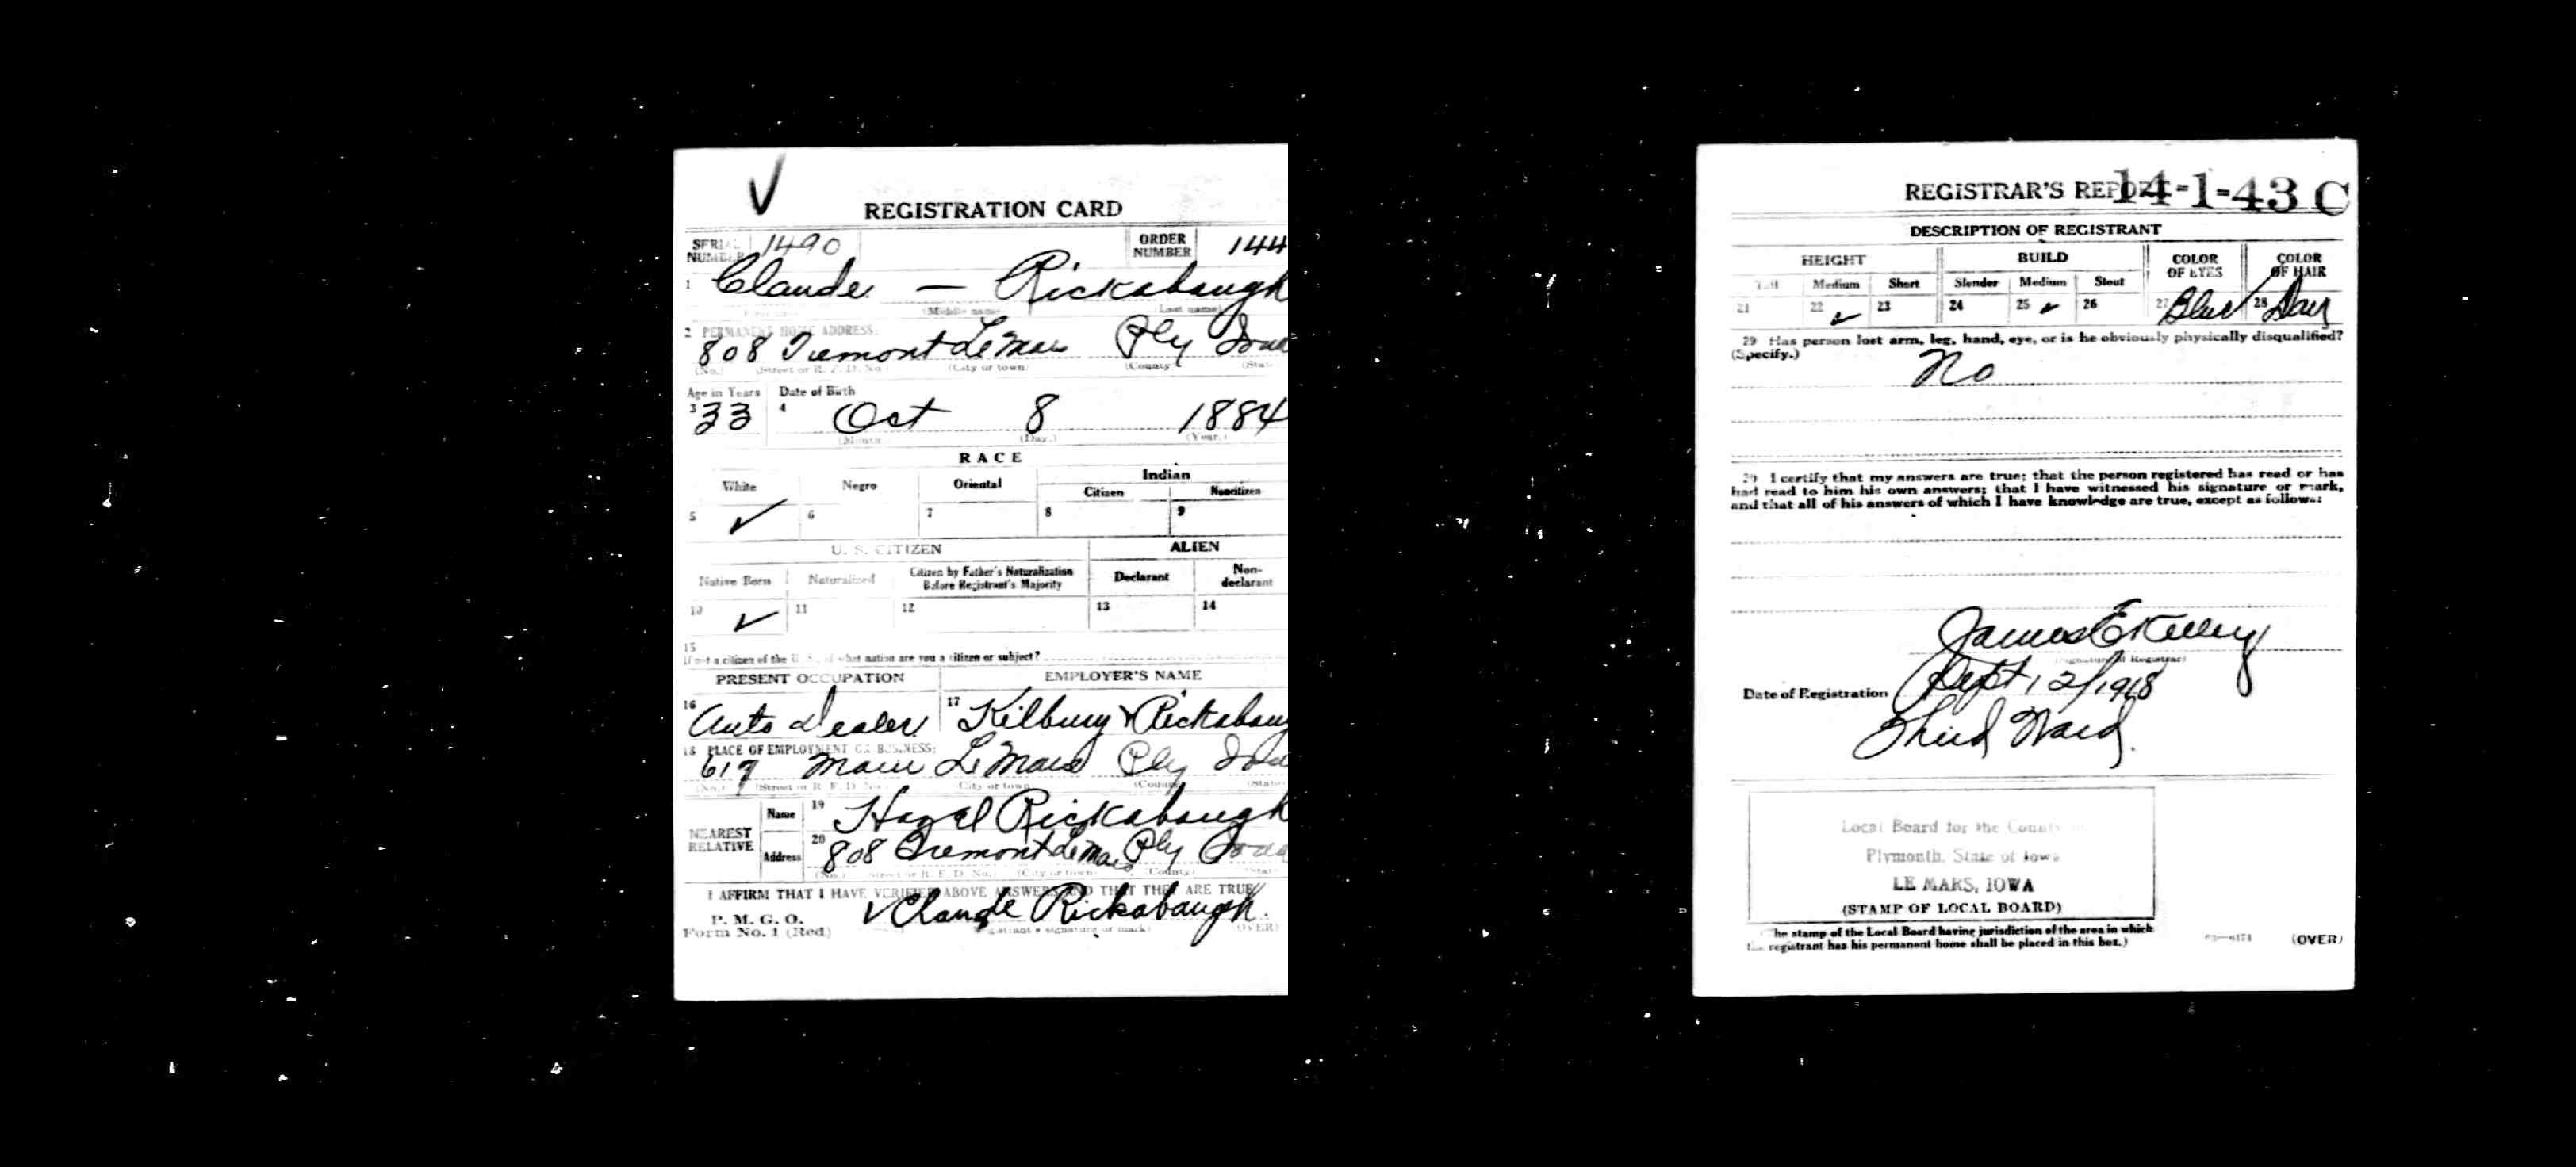 REGISTRATION CARD
SERIAL NUMBER 1490 ORDER NUMBER 144
1 Claude — Rickabaugh
(Middle name) (Last name)
2 PERMANENT HOME ADDRESS:
808 Tremont Le Mars Ply Iowa
(No.) (Street or R. F. D. No.) (City or town) (County) (State
Age in Years Date of Birth
3 33 4 Oct 8 1884
(Month) (Day.) (Year.)
RACE
White Negro Oriental Indian
Citizen Noncitizen
5 ✓ 6 7 8 9
U. S. CITIZEN ALIEN
Native Born Naturalized Citizen by Father's Naturalization Before Registrant's Majority Declarant Non-declarant
10 ✓ 11 12 13 14
15
If not a citizen of the U. S., of what nation are you a citizen or subject?
PRESENT OCCUPATION EMPLOYER'S NAME
16 Auto Dealer 17 Kilbury & Rickabau
18 PLACE OF EMPLOYMENT OR BUSINESS:
619 Main Le Mars Ply Iowa
(No.) (Street or R. F. D. No.) (City or town) (County) (State)
NEAREST RELATIVE
Name 19 Hazel Rickabaugh
Address 20 808 Tremont Le Mars Ply Iowa
(No.) (Street or R. F. D. No.) (City or town) (County) (State)
I AFFIRM THAT I HAVE VERIFIED ABOVE ANSWERS AND THAT THEY ARE TRUE
P. M. G. O.
Form No. 1 (Red)
✓ Claude Rickabaugh.
(Registrant's signature or mark) (OVER)
REGISTRAR'S REPORT 14-1-43 C
DESCRIPTION OF REGISTRANT
HEIGHT BUILD COLOR OF EYES COLOR OF HAIR
Tall Medium Short Slender Medium Stout
21 22 ✓ 23 24 25 ✓ 26 27 Blue 28 Dark
29 Has person lost arm, leg, hand, eye, or is he obviously physically disqualified?
(Specify.)
No
30 I certify that my answers are true; that the person registered has read or has
had read to him his own answers; that I have witnessed his signature or mark,
and that all of his answers of which I have knowledge are true, except as follows:
James E Kelley
(Signature of Registrar)
Date of Registration Sept 12/1918
Third Ward.
Local Board for the County of
Plymouth, State of Iowa
LE MARS, IOWA
(STAMP OF LOCAL BOARD)
The stamp of the Local Board having jurisdiction of the area in which
the registrant has his permanent home shall be placed in this box.)
03—6171 (OVER)